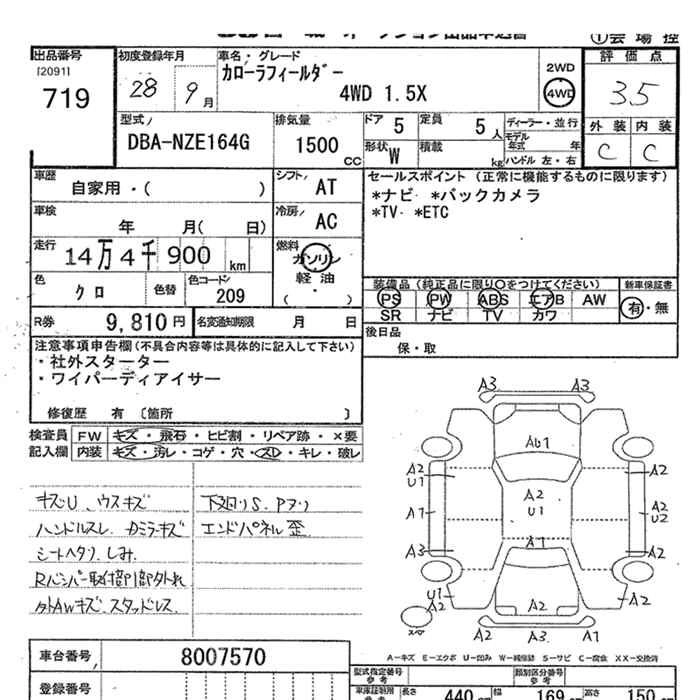 出品番号 初度登録年月 車名・グレード ①会場控
[2091] カローラフィールダー 2WD 評価点
719 28 9月 4WD 1.5X 4WD 3.5
型式 排気量 ドア 5 定員 5人 ディーラー・並行 外装 内装
DBA-NZE164G 1500cc 形状 W 積載 kg モデル年式 年 C C
ハンドル 左・右
車歴 シフト セールスポイント (正常に機能するものに限ります)
自家用・( ) AT *ナビ *バックカメラ
車検 冷房 *TV *ETC
年 月( 日) AC
走行 燃料
14万4千900km ガソリン
色 色替 色コード 軽油 装備品(純正品に限り○をつけてください) 新車保証書
クロ 209 ( ・ ) PS PW ABS エアB AW 有・無
R券 9,810円 名変通知期限 月 日 SR ナビ TV カワ
後日品
注意事項申告欄(不具合内容等は具体的に記入して下さい) 保・取
・社外スターター
・ワイパーディアイサー
修復歴 有 〔箇所 〕
検査員 FW キズ・飛石・ヒビ割・リペア跡・×要
記入欄 内装 キズ・汚レ・コゲ・穴・スレ・キレ・破レ
A3 A3
AU1
A2 U1 A2 A2
U1
A1 A2 U2
A3 A1 A2
U1 A2 A2 A2
A2 A3 A1
キズU、ウスキズ 下廻りS、Pアリ
ハンドルスレ、カミラーキズ エンドパネル歪
シートヘタリ、しみ
Rバンパー取付部1部外れ
外AWキズ、スタッドレス
A-キズ E-エクボ U-凹み W-補修跡 S-サビ C-腐食 XX-交換済
車台番号 8007570 型式指定番号 参考 類別区分番号 参考
登録番号 車庫証明用 参考 長さ 440 幅 169 高さ 150